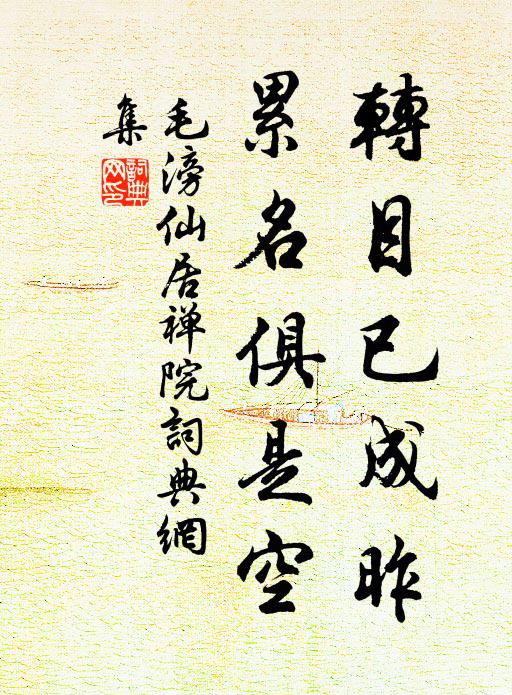 轉目已成昨
累名俱是空
毛滂仙居禅院詞典網
集
詞典
網印